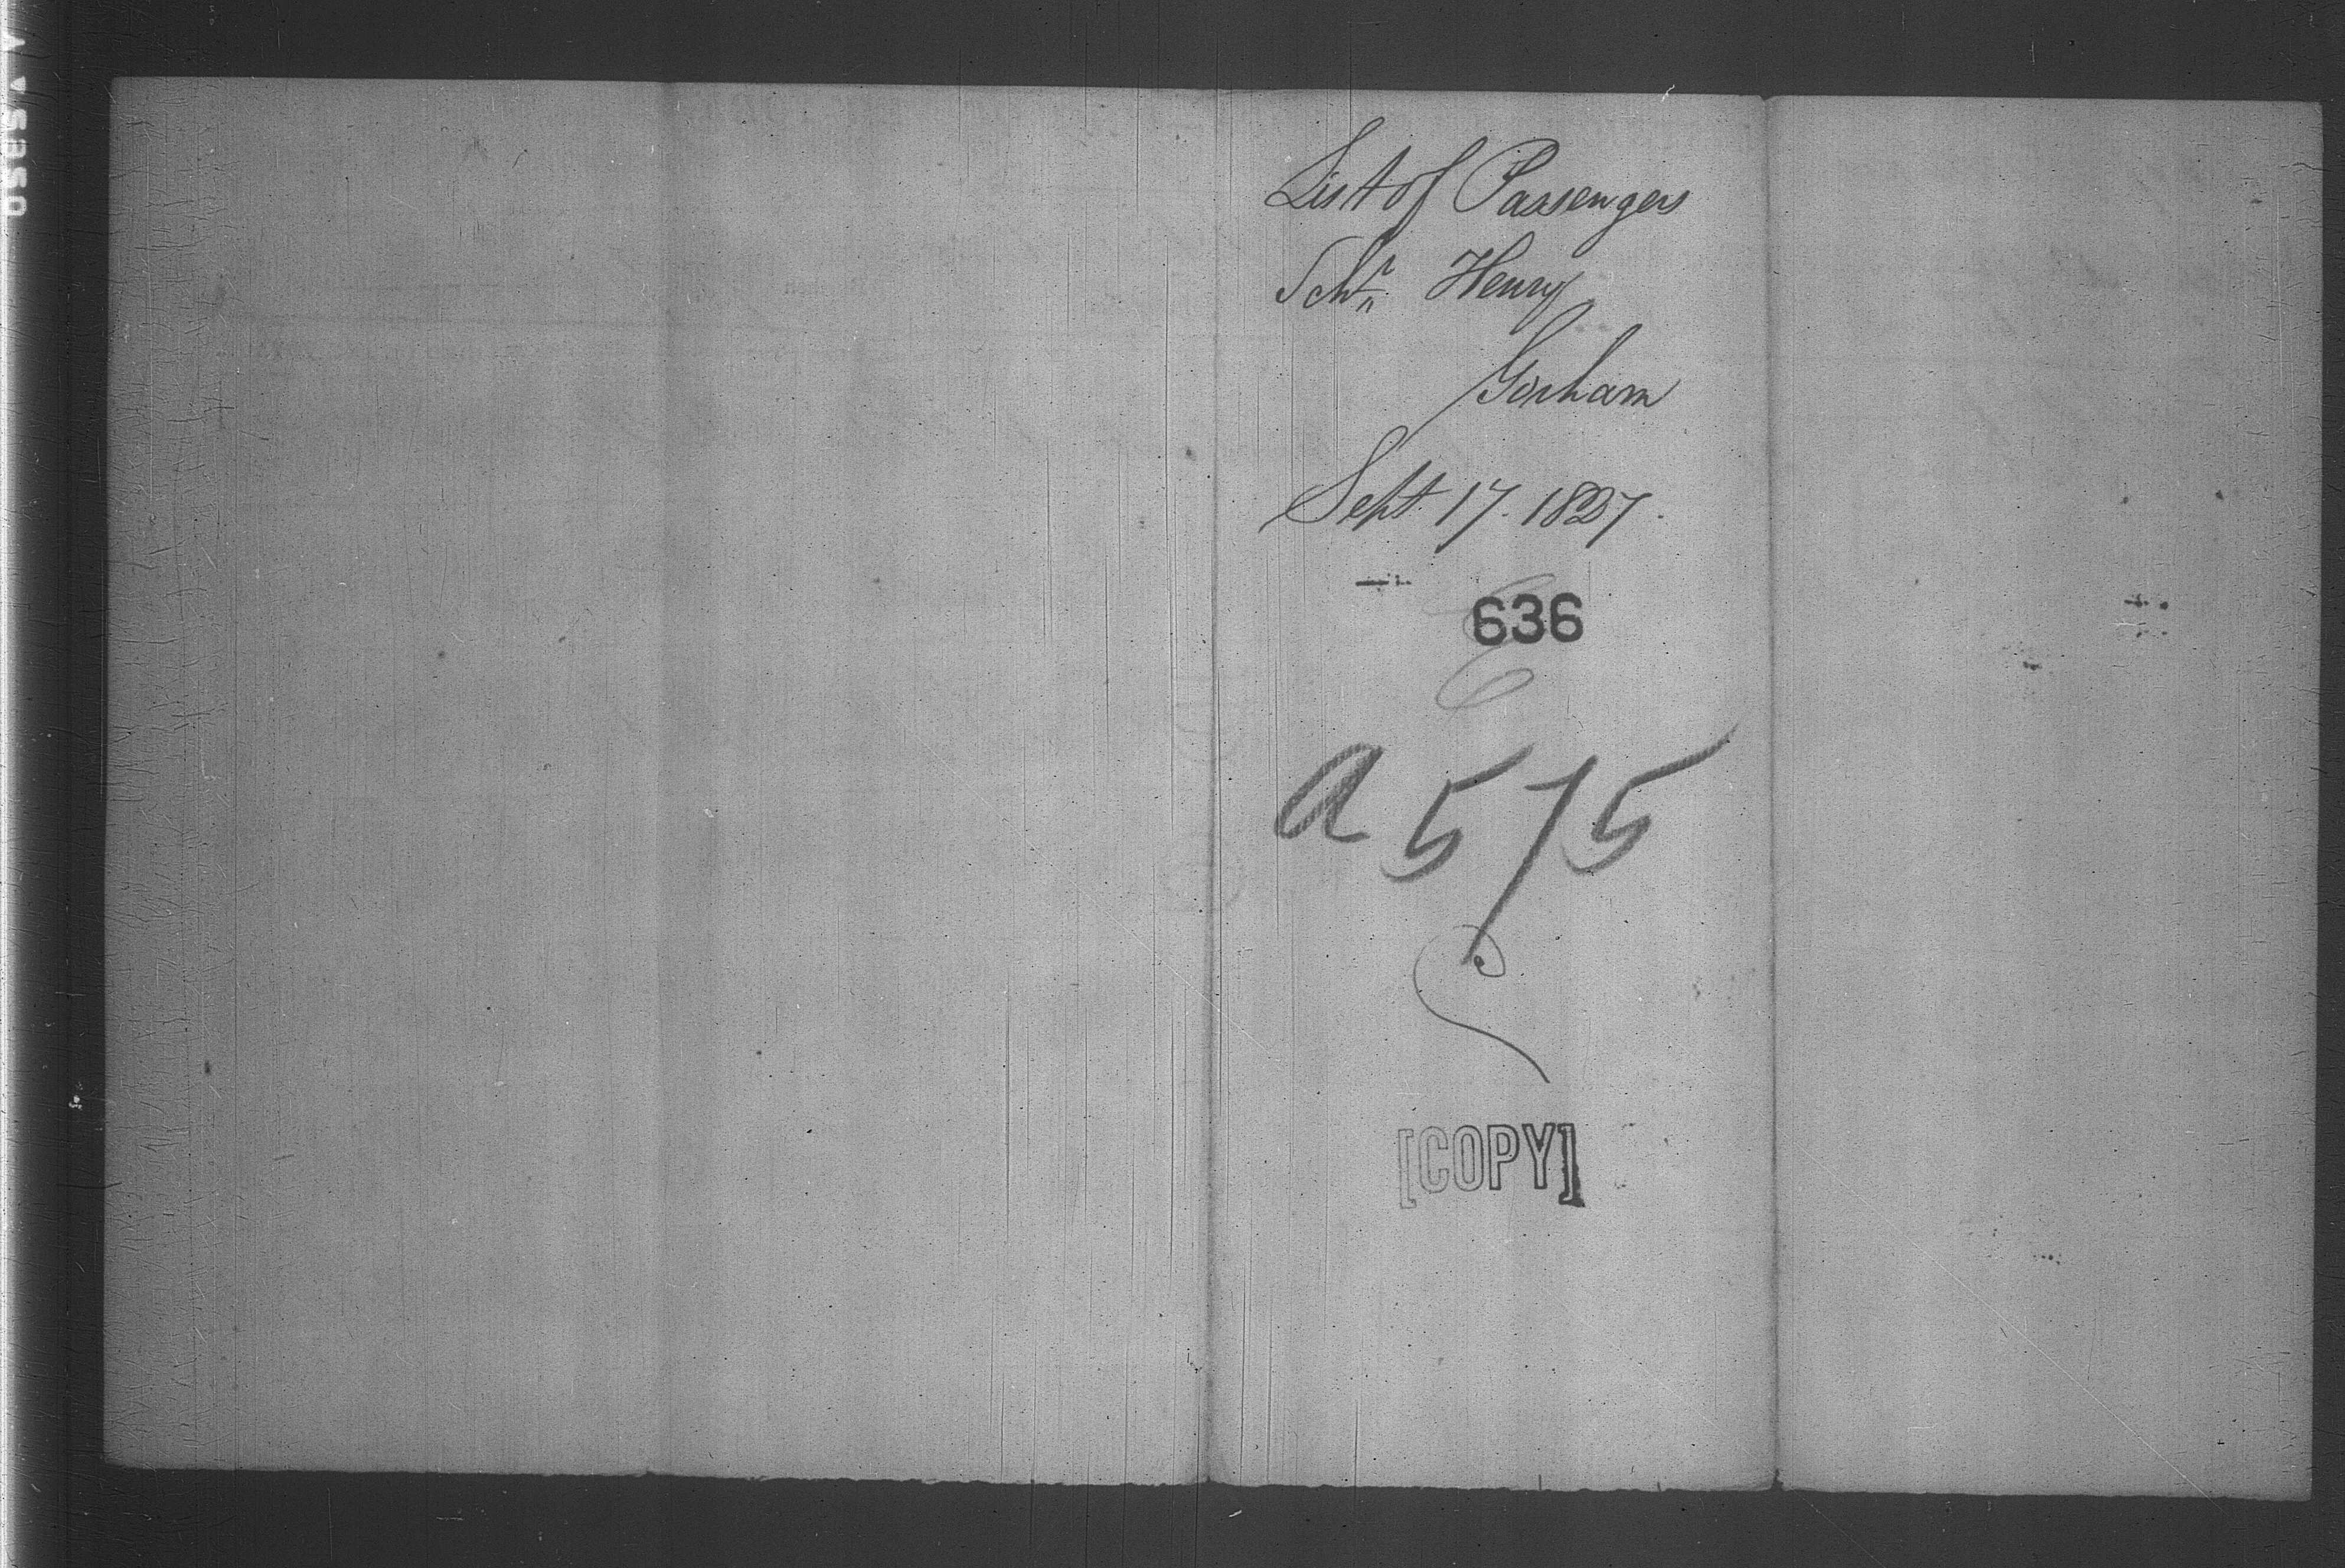 List of Passengers
Schr. Henry
Gorham
Sept. 17. 1827.
636
A 575
[COPY]